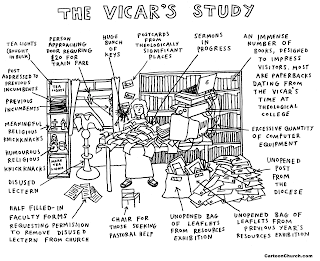 THE VICAR'S STUDY
TEA LIGHTS
(BOUGHT
IN BULK)
PERSON
APPROACHING
DOOR REQUIRING
£20 FOR
TRAIN FARE
HUGE
BUNCH
OF
KEYS
POSTCARDS
FROM
THEOLOGICALLY
SIGNIFICANT
PLACES
SERMONS
IN
PROGRESS
AN IMMENSE
NUMBER OF
BOOKS, DESIGNED
TO IMPRESS
VISITORS. MOST
ARE PAPERBACKS
DATING FROM
THE VICAR'S
TIME AT
THEOLOGICAL
COLLEGE
POST
ADDRESSED TO
PREVIOUS
INCUMBENTS
PREVIOUS
INCUMBENTS'
MEANINGFUL
RELIGIOUS
KNICKKNACKS
HUMOUROUS
RELIGIOUS
KNICKKNACKS
DISUSED
LECTERN
EXCESSIVE QUANTITY
OF COMPUTER
EQUIPMENT
UNOPENED
POST
FROM
THE
DIOCESE
HALF FILLED-IN
FACULTY FORMS
REQUESTING PERMISSION
TO REMOVE DISUSED
LECTERN FROM CHURCH
CHAIR FOR
THOSE SEEKING
PASTORAL HELP
UNOPENED BAG OF
LEAFLETS FROM
RESOURCES
EXHIBITION
UNOPENED BAG OF
LEAFLETS FROM
PREVIOUS YEAR'S
RESOURCES EXHIBITION
CartoonChurch.com